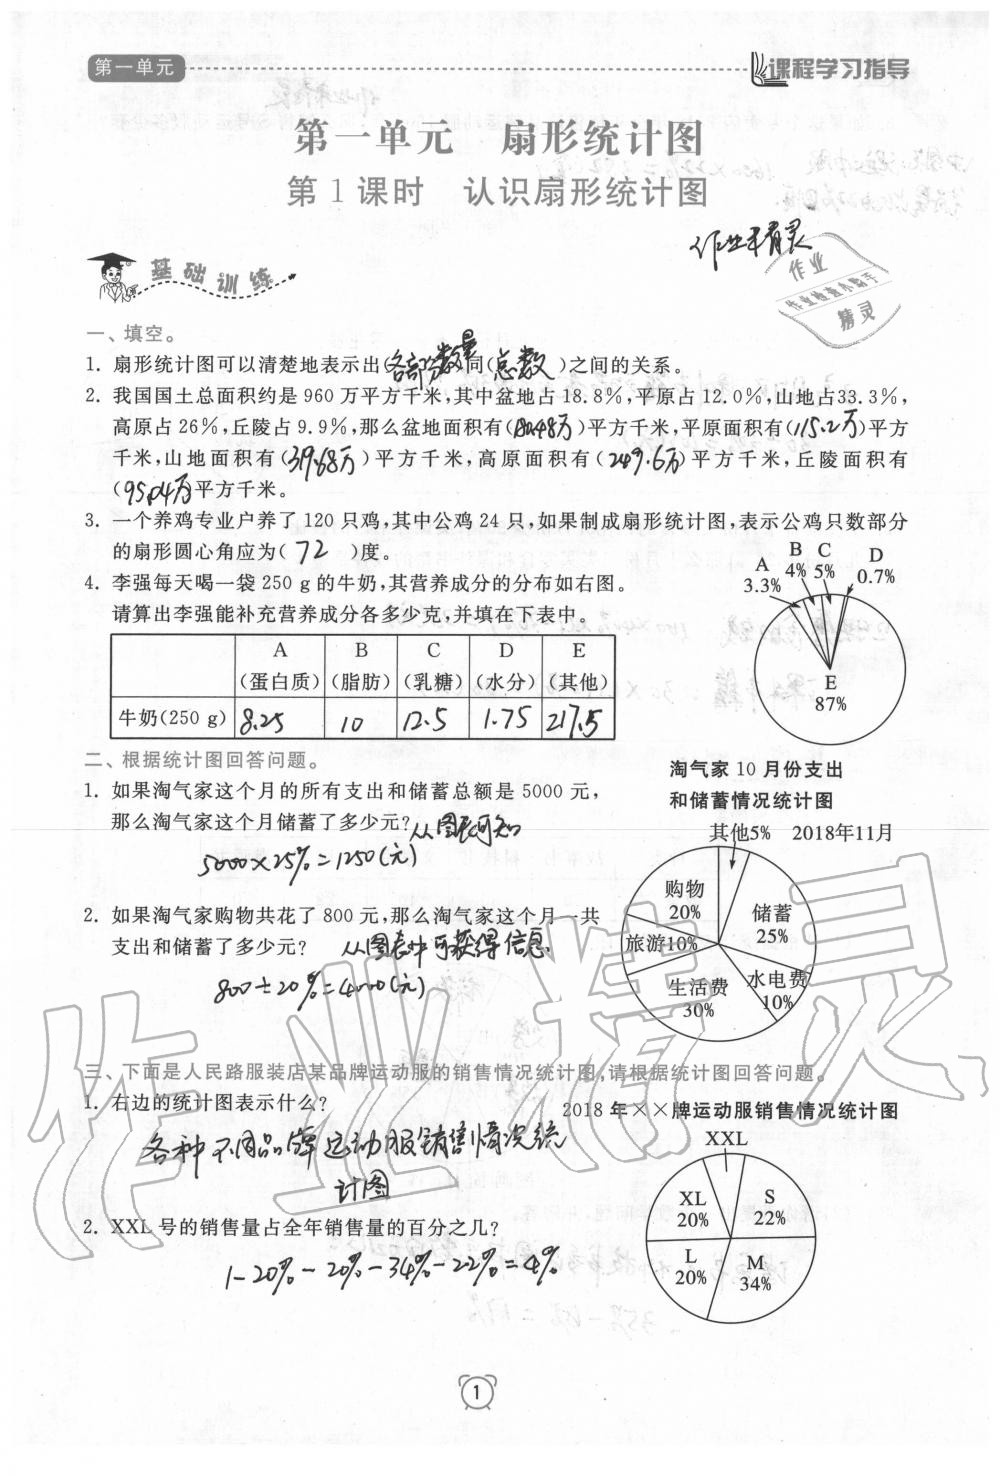 第一单元
课程学习指导
第一单元 扇形统计图
第1课时 认识扇形统计图
作业精灵
作业
作业检查小助手
精灵
基础训练
一、填空。
1. 扇形统计图可以清楚地表示出(各部分数量)同(总数)之间的关系。
2. 我国国土总面积约是960万平方千米,其中盆地占18.8%,平原占12.0%,山地占33.3%,
高原占26%,丘陵占9.9%,那么盆地面积有(180.48万)平方千米,平原面积有(115.2万)平方
千米,山地面积有(319.68万)平方千米,高原面积有(249.6万)平方千米,丘陵面积有
(95.04万)平方千米。
3. 一个养鸡专业户养了120只鸡,其中公鸡24只,如果制成扇形统计图,表示公鸡只数部分
的扇形圆心角应为( 72 )度。
4. 李强每天喝一袋250 g的牛奶,其营养成分的分布如右图。
请算出李强能补充营养成分各多少克,并填在下表中。
A B C D E
(蛋白质) (脂肪) (乳糖) (水分) (其他)
牛奶(250 g) 8.25 10 12.5 1.75 217.5
A 3.3%
B 4%
C 5%
D 0.7%
E 87%
二、根据统计图回答问题。
1. 如果淘气家这个月的所有支出和储蓄总额是5000元,
那么淘气家这个月储蓄了多少元? 从图表可知
5000×25%=1250(元)
2. 如果淘气家购物共花了800元,那么淘气家这个月一共
支出和储蓄了多少元? 从图表中可获得信息
800÷20%=4000(元)
淘气家10月份支出
和储蓄情况统计图
其他5% 2018年11月
购物 20%
储蓄 25%
旅游10%
生活费 30%
水电费 10%
三、下面是人民路服装店某品牌运动服的销售情况统计图,请根据统计图回答问题。
1. 右边的统计图表示什么?
各种不同品牌运动服销售情况统
计图
2. XXL号的销售量占全年销售量的百分之几?
1-20%-20%-34%-22%=4%
2018年××牌运动服销售情况统计图
XXL
XL 20%
S 22%
L 20%
M 34%
1
作业精灵